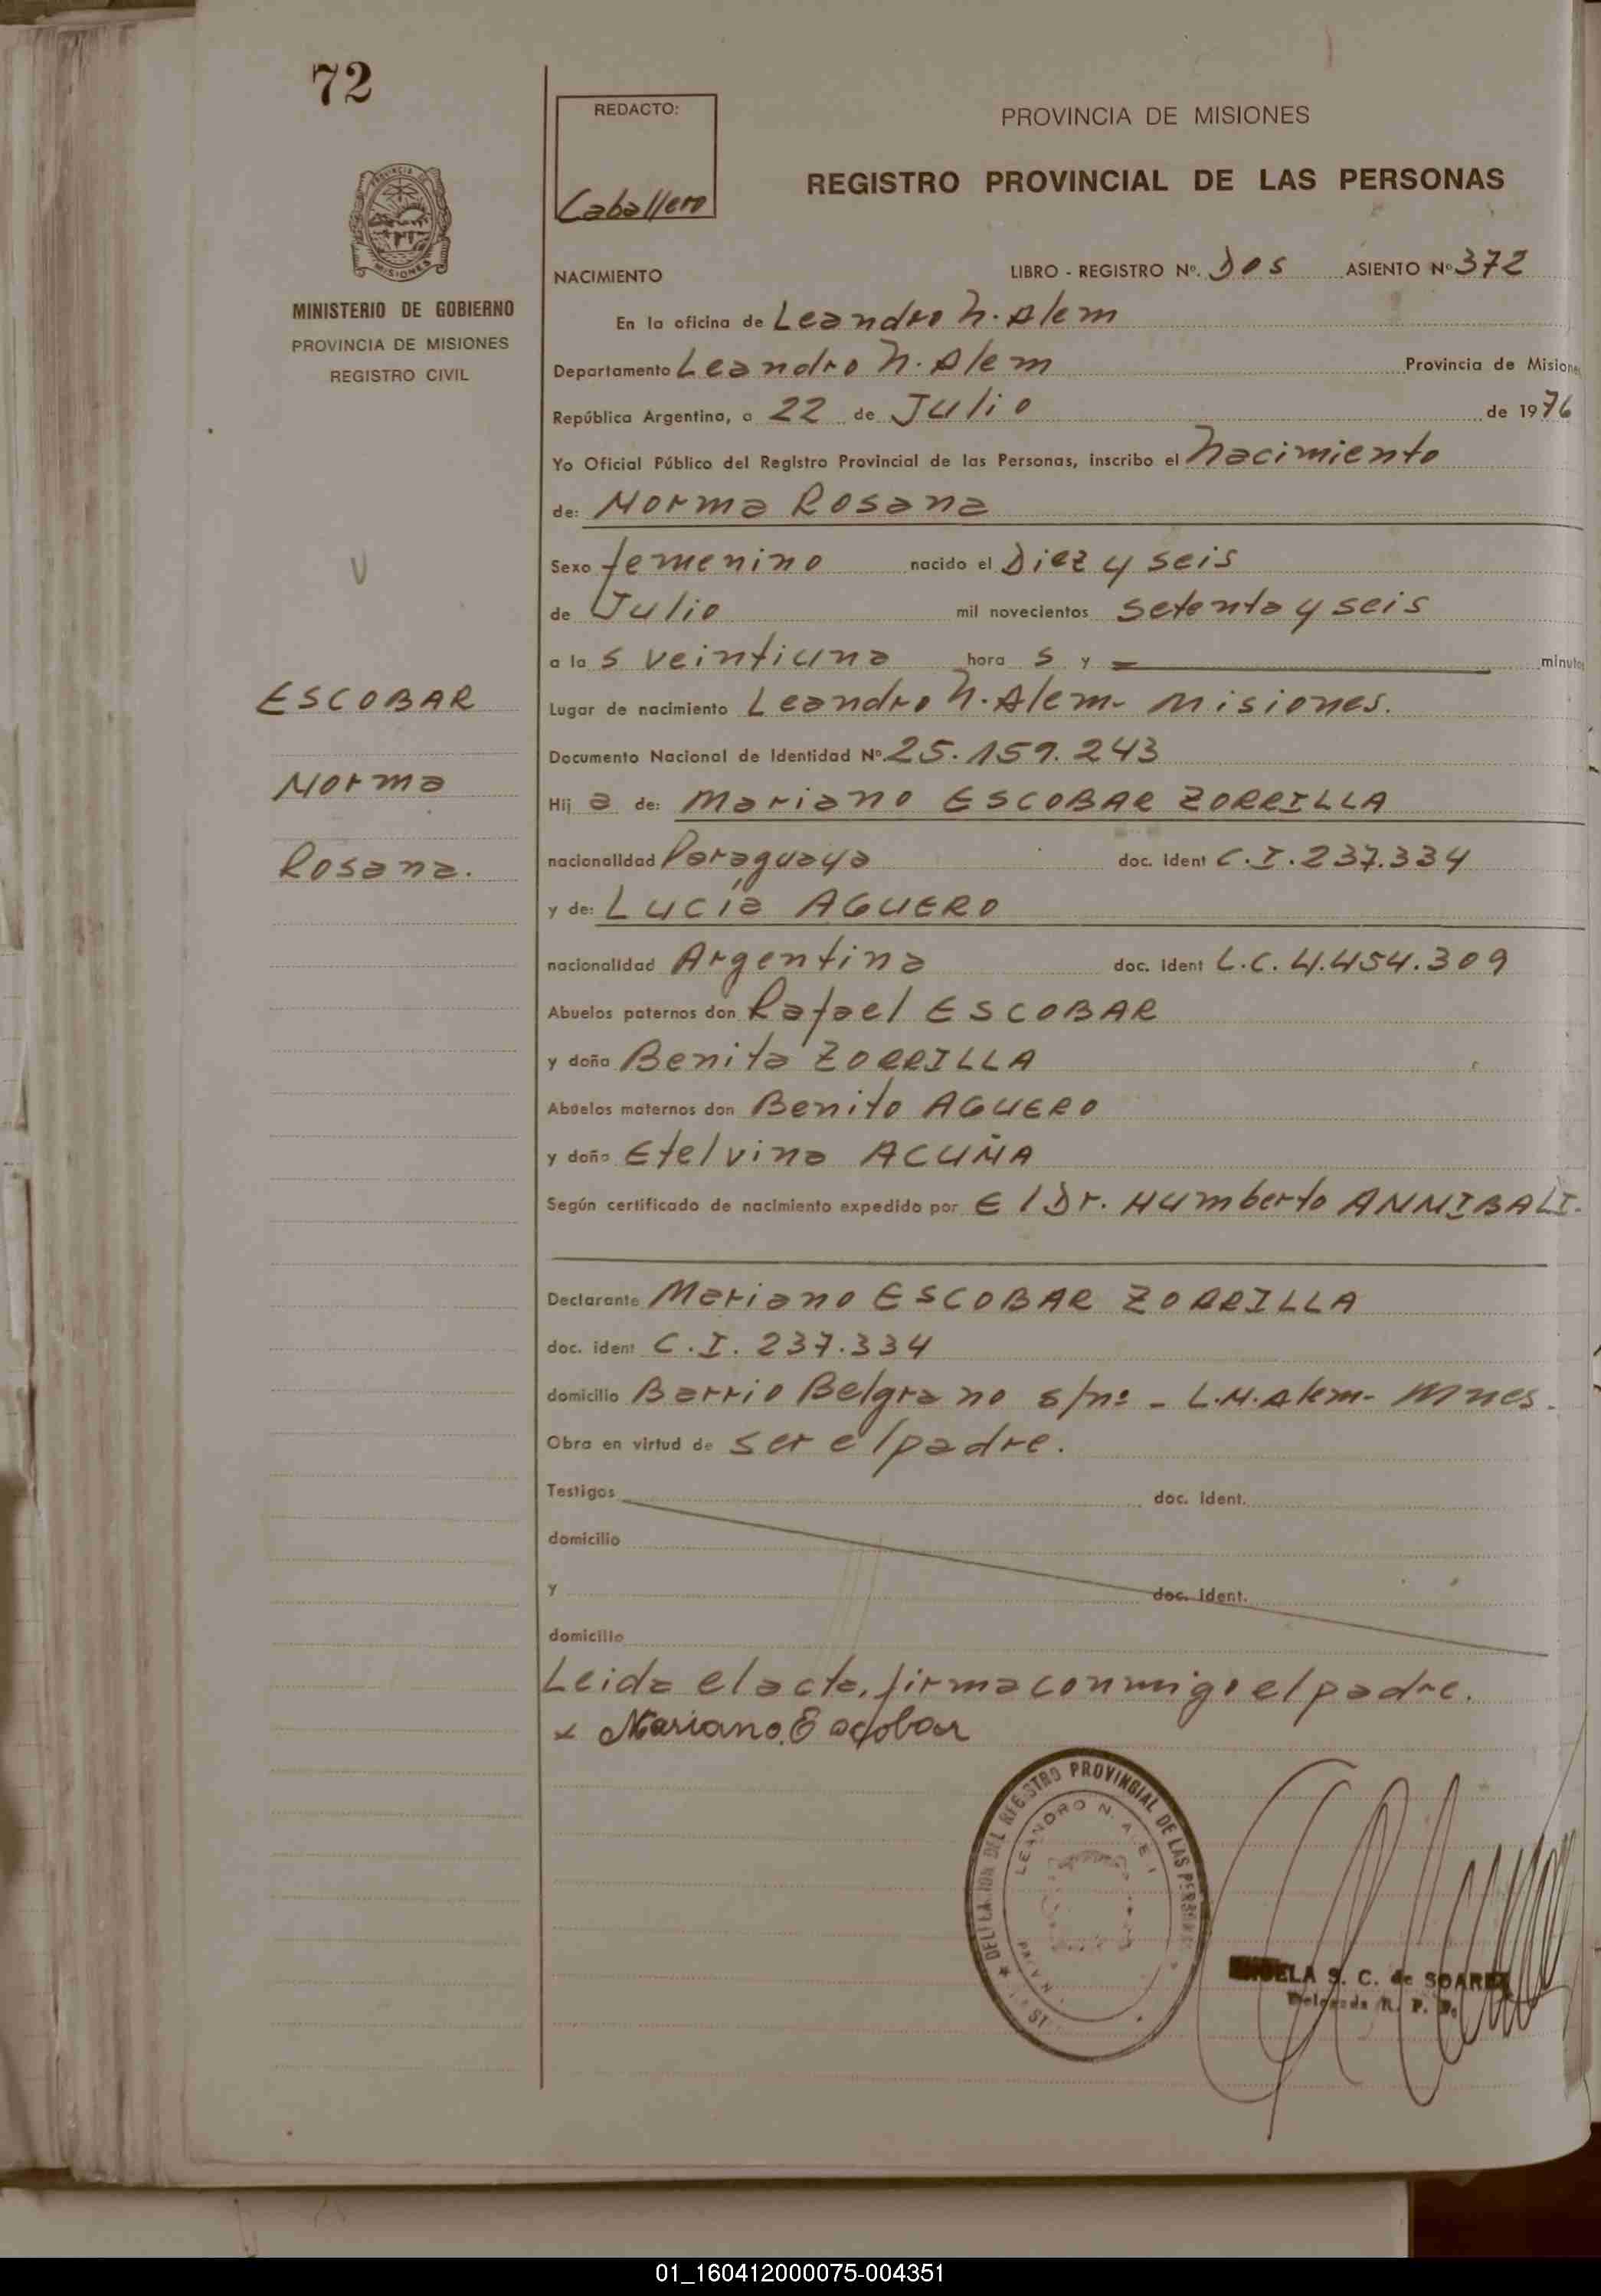 72
PROVINCIA DE
MISIONES
MINISTERIO DE GOBIERNO
PROVINCIA DE MISIONES
REGISTRO CIVIL
ESCOBAR
Norma
Rosana.
REDACTO:
Caballero
PROVINCIA DE MISIONES
REGISTRO PROVINCIAL DE LAS PERSONAS
NACIMIENTO LIBRO - REGISTRO Nº. Dos ASIENTO Nº 372
En la oficina de Leandro N. Alem
Departamento Leandro N. Alem Provincia de Misiones
República Argentina, a 22 de Julio de 1976
Yo Oficial Público del Registro Provincial de las Personas, inscribo el Nacimiento
de: Norma Rosana
Sexo femenino nacido el Diez y seis
de Julio mil novecientos setenta y seis
a la s veintiuna hora s y = minutos
Lugar de nacimiento Leandro N. Alem - Misiones.
Documento Nacional de Identidad Nº. 25.159.243
Hij a de: Mariano ESCOBAR ZORRILLA
nacionalidad Paraguaya doc. ident C.I. 237.334
y de: Lucía AGUERO
nacionalidad Argentina doc. ident L.C. 4.454.309
Abuelos paternos don Rafael ESCOBAR
y doña Benita ZORRILLA
Abuelos maternos don Benito AGUERO
y doña Etelvina ACUÑA
Según certificado de nacimiento expedido por El Dr. Humberto ANNIBALI.
Declarante Mariano ESCOBAR ZORRILLA
doc. ident C.I. 237.334
domicilio Barrio Belgrano s/nº - L.N. Alem - Mnes.
Obra en virtud de ser el padre.
Testigos doc. ident.
domicilio
y doc. ident.
domicilio
Leida el acta, firma conmigo el padre.
x Mariano Escobar
DEL REGISTRO PROVINCIAL DE LAS
LEANDRO N.
S. C. de SOAREZ
Delegada R. P. P.
01_160412000075-004351